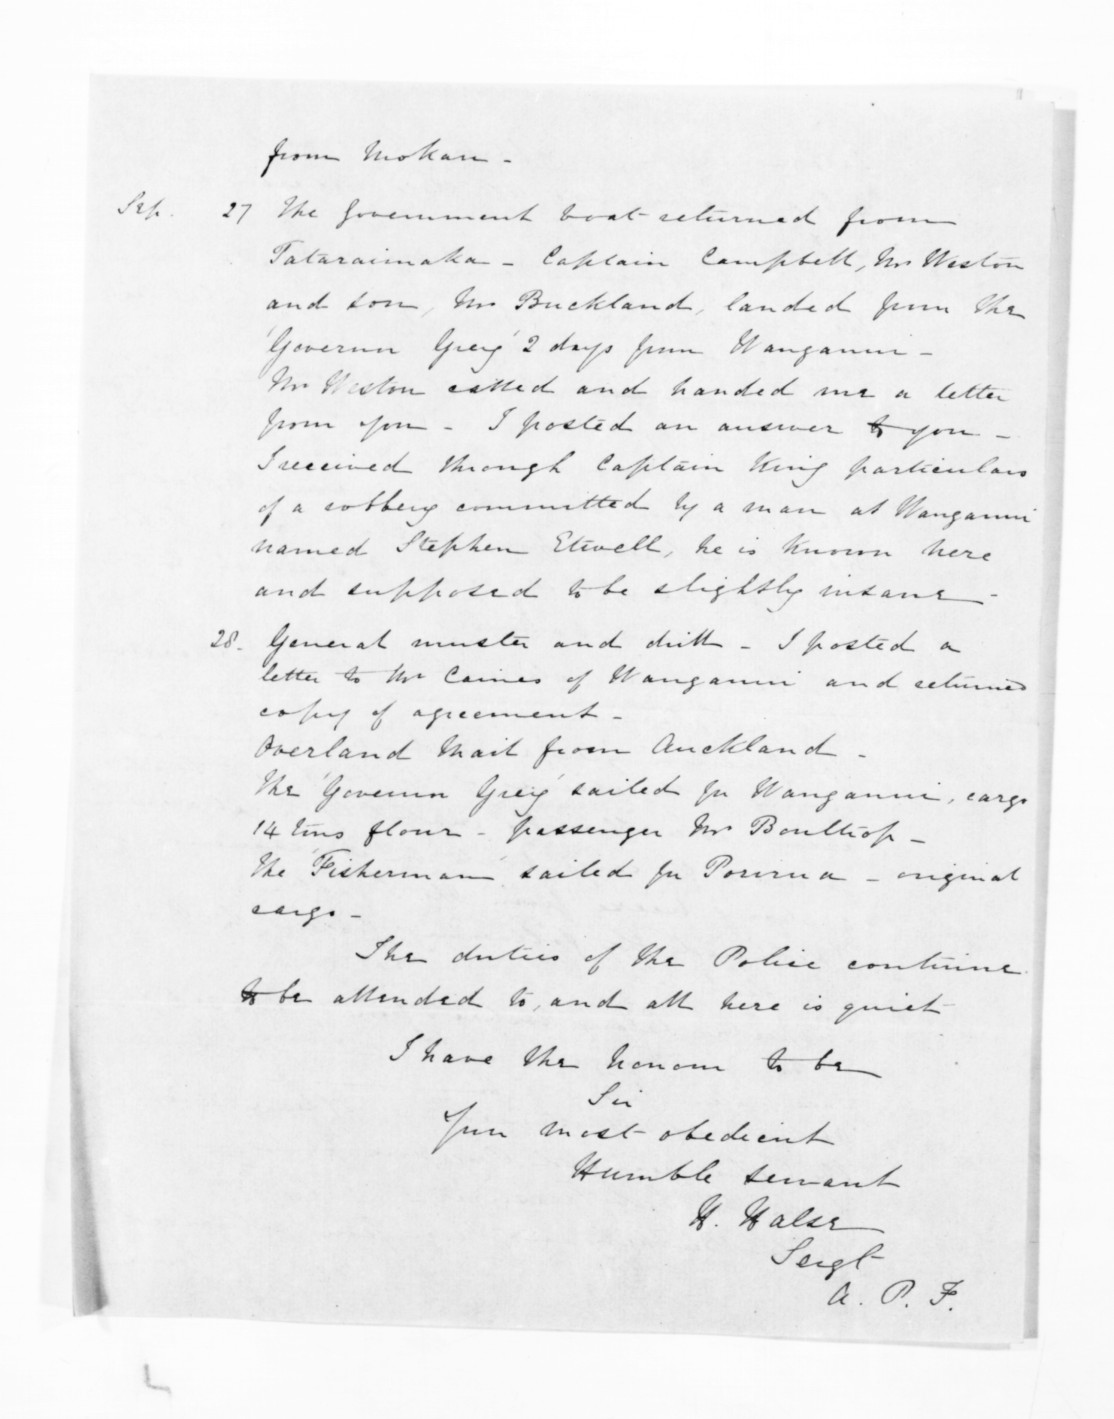 from Mokau -
Sep. 27 The Government boat returned from
Tataraimaka - Captain Campbell, Mr Weston
and son, Mr Buckland, landed from the
'Governor Grey' 2 days from Wanganui -
Mr Weston called and handed me a letter
from you - I posted an answer to you -
I received through Captain King particulars
of a robbery committed by a man at Wanganui
named Stephen Etwell, he is known here
and supposed to be slightly insane -
28. General muster and drill - I posted a
letter to Mr Caines of Wanganui and returned
copy of agreement -
Overland Mail from Auckland -
The 'Governor Grey' sailed for Wanganui, cargo
14 tins flour - passenger Mr Boulltop -
The 'Fisherman' sailed for Porirua - original
cargo -
The duties of the Police continue
to be attended to, and all here is quiet
I have the honour to be
Sir
Your most obedient
Humble servant
H. Halse
Sergt
A. P. F.